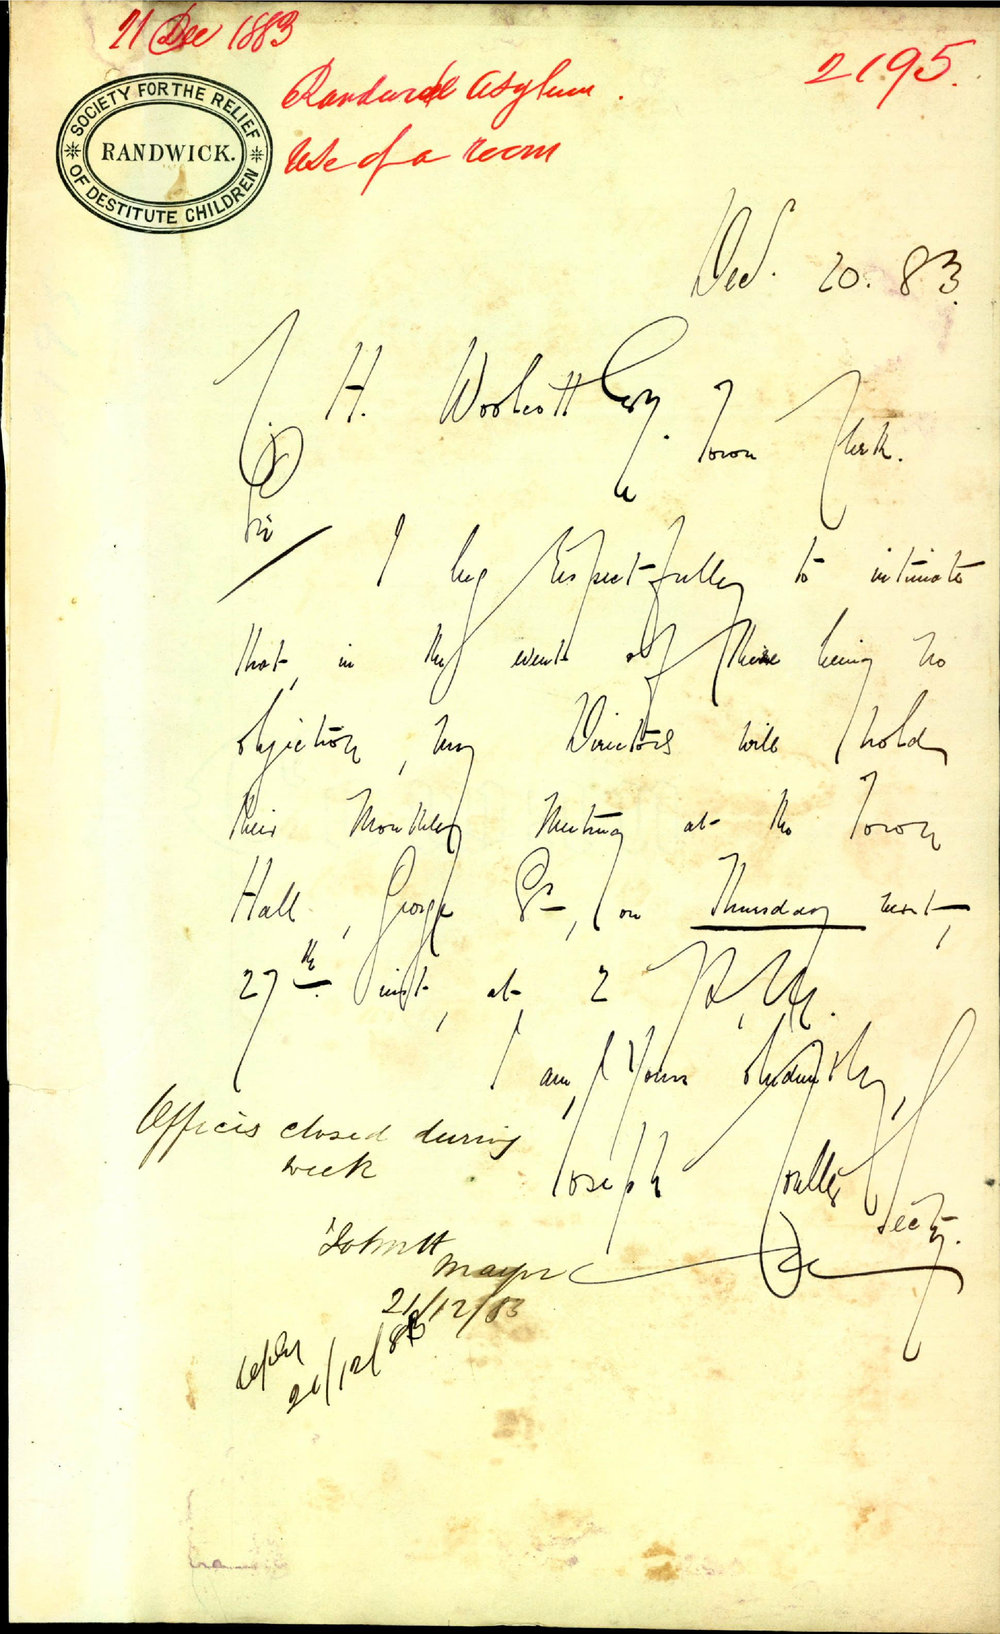 21 Dec 1883
2195.
Randwick Asylum.
Use of a room
SOCIETY FOR THE RELIEF
RANDWICK.
OF DESTITUTE CHILDREN
Decr. 20. 83.
H. Woolcott Esq.
Town Clerk.
Sir
I beg respectfully to intimate
that, in the event of there being no
objection, my Directors will hold
their Monthly Meeting at the Town
Hall, George St, on Thursday next,
27th inst, at 2 P.M.
I am, Yours obediently,
Joseph Coulter
Secty.
Offices closed during
week
Mayor
21/12/83
21/12/83